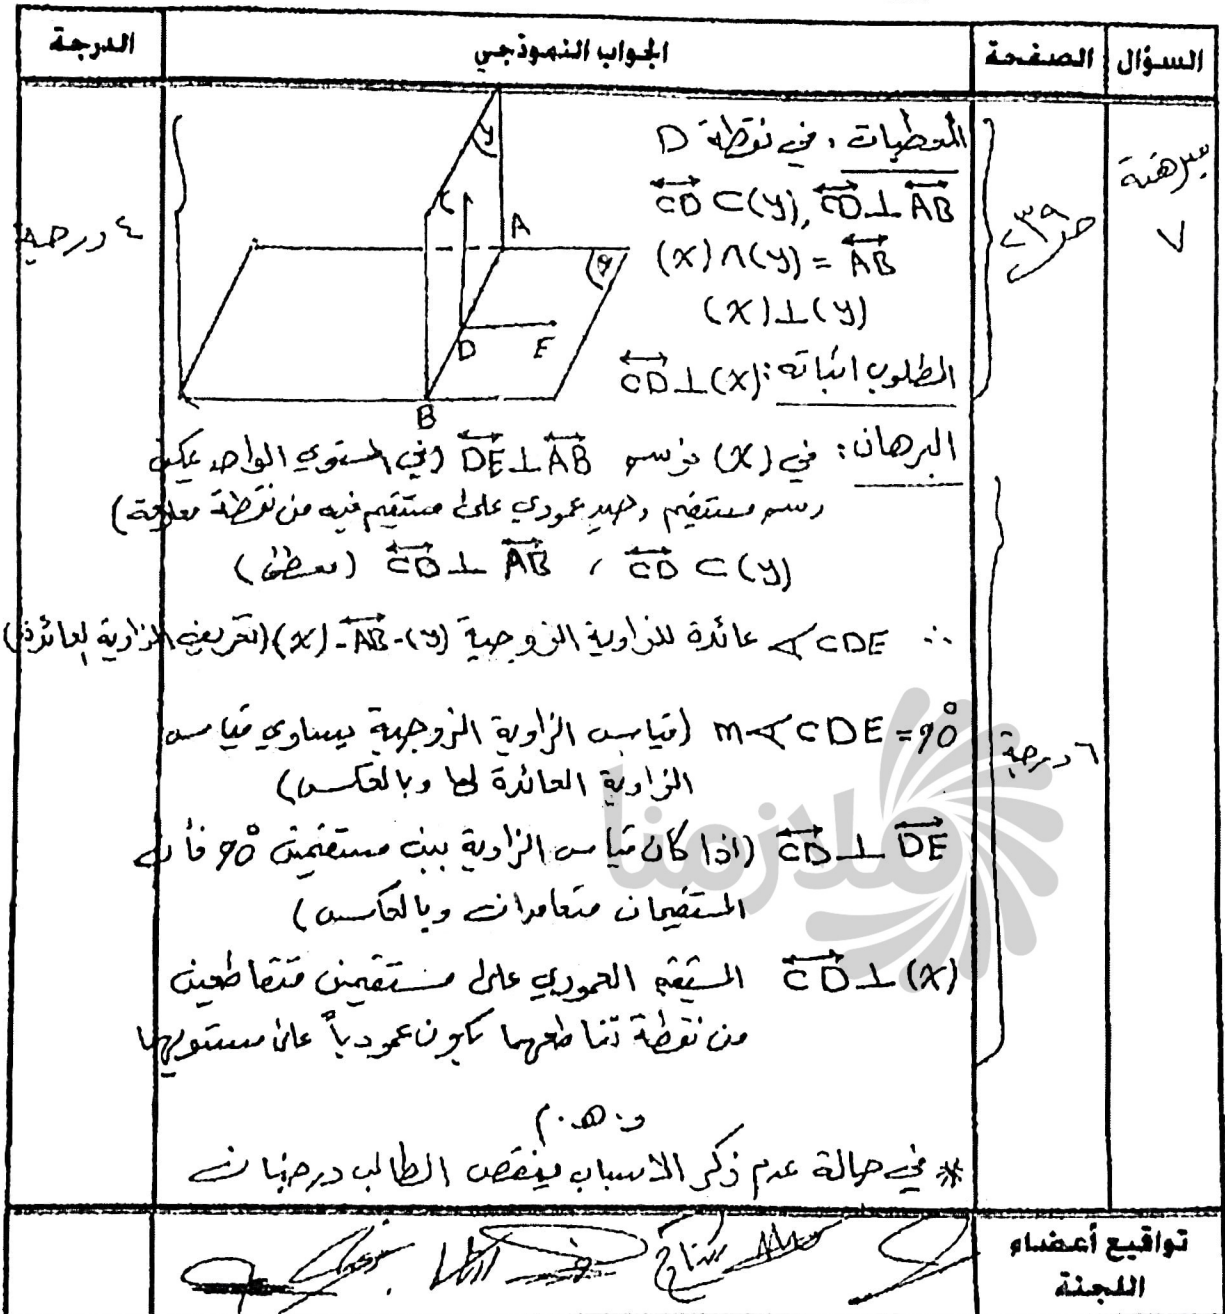 السؤال الصفحة الجواب النموذجي الدرجة
مبرهنة
٧
٤ درجة
المعطيات: في نقطة D
CD ⊂ (y), CD ⊥ AB
(x) ∩ (y) = AB
(x) ⊥ (y)
المطلوب اثباته: CD ⊥ (x)
y
C
A
x
D
E
B
البرهان: في (x) نرسم DE ⊥ AB (في المستوي الواحد يمكن
رسم مستقيم وحيد عمودي على مستقيم فيه من نقطة معلومة)
CD ⊂ (y) ، CD ⊥ AB (معطى)
∴ ∢CDE عائدة للزاوية الزوجية (y)-AB-(x) (تعريف الزاوية العائدة)
m∢CDE = 90° (قياس الزاوية الزوجية يساوي قياس
الزاوية العائدة لها وبالعكس)
٦ درجة
CD ⊥ DE (اذا كان قياس الزاوية بين مستقيمين 90° فأن
المستقيمان متعامدان وبالعكس)
CD ⊥ (x) المستقيم العمودي على مستقيمين متقاطعين
من نقطة تقاطعهما يكون عمودياً على مستويهما
و.هـ.م
* في حالة عدم ذكر الاسباب ينقص الطالب درجتان
ملازمنا
تواقيع أعضاء
اللجنة